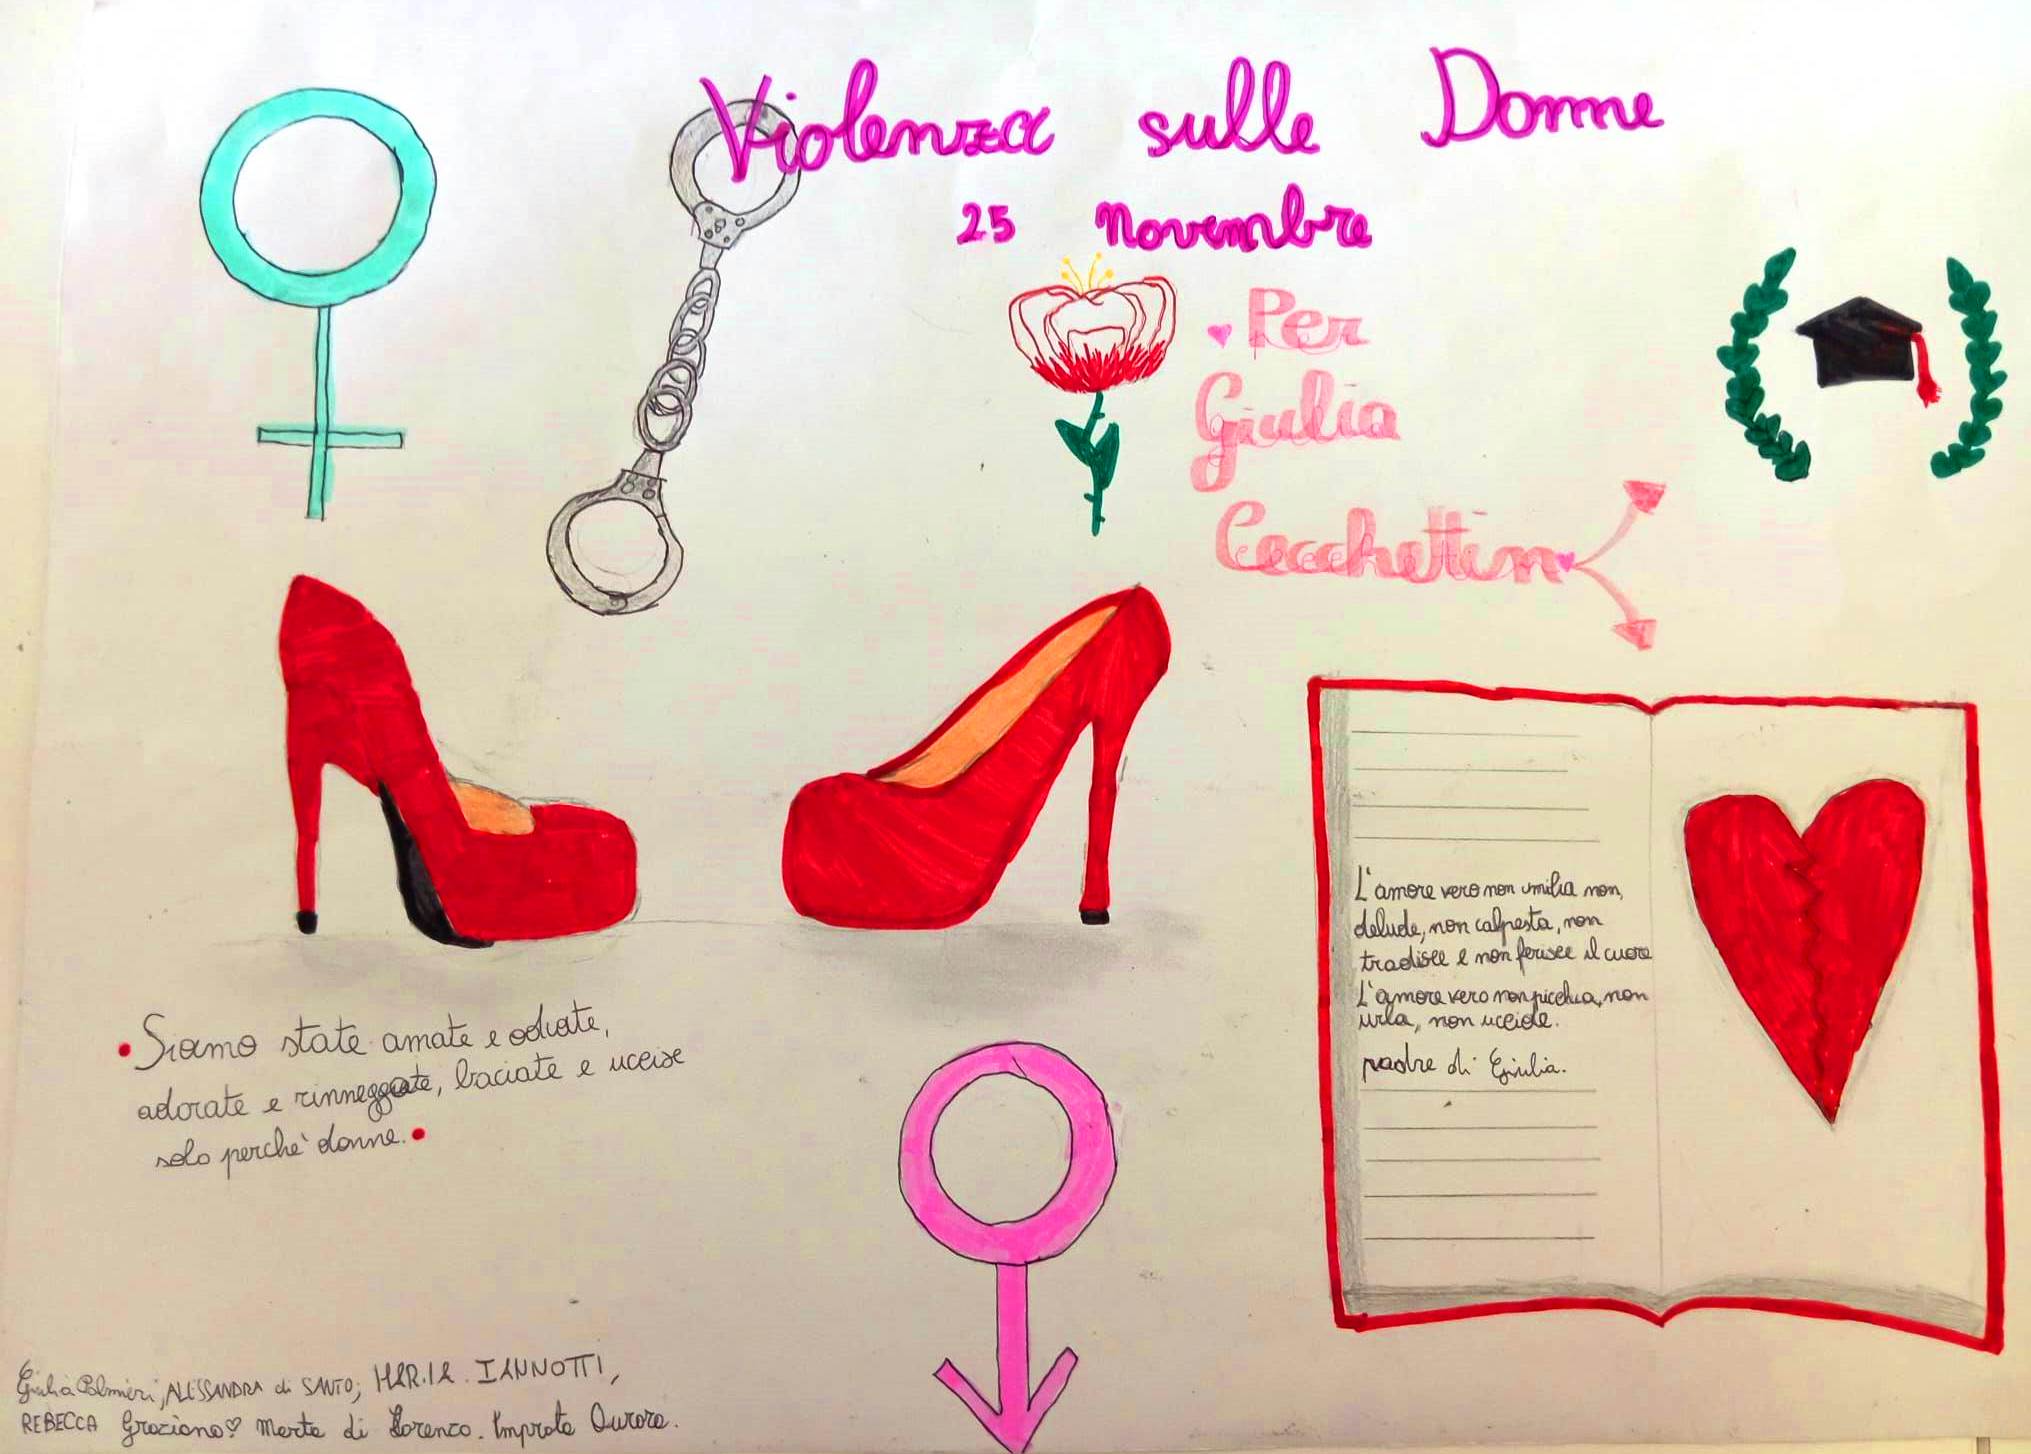 Violenza sulle Donne
25 Novembre
Per
Giulia
Cecchettin
L'amore vero non umilia non,
delude, non calpesta, non
tradisce e non ferisce il cuore
L'amore vero non picchia, non
urla, non uccide.
padre di Giulia.
Siamo state amate e odiate,
adorate e rinneggate, baciate e uccise
solo perchè donne.
Giulia Palmieri, ALESSANDRA di SANTO; MARIA. IANNOTTI,
REBECCA Graziano Marta di Lorenzo. Improta Aurora.